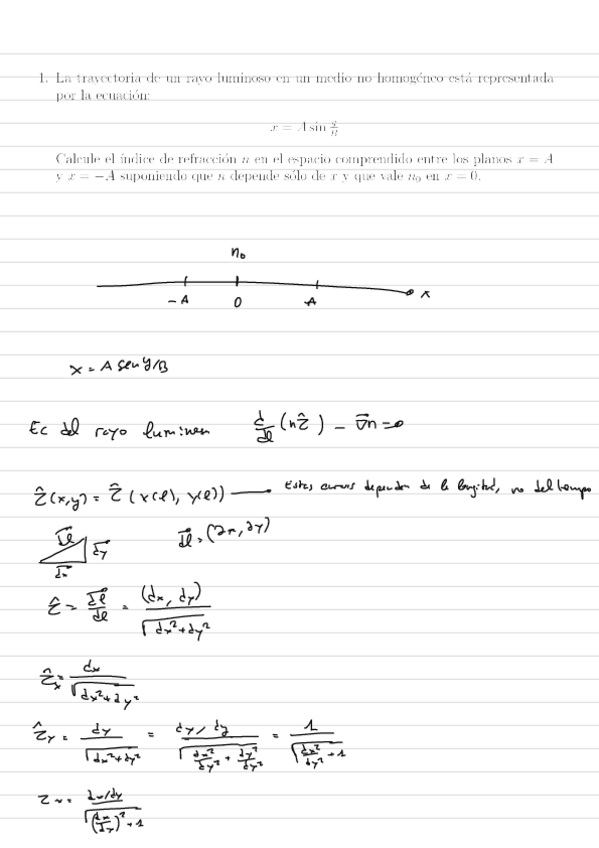 1. La trayectoria de un rayo luminoso en un medio no homogéneo está representada
por la ecuación:
x = A sin y/B
Calcule el índice de refracción n en el espacio comprendido entre los planos x = A
y x = −A suponiendo que n depende sólo de x y que vale n₀ en x = 0.
n₀
-A 0 A x
x = A sen y/B
Ec del rayo luminoso d/dl (n τ̂) − ∇⃗n = 0
τ̂(x,y) = τ̂(x(l), y(l)) Estas curvas dependen de la longitud, no del tiempo
dl⃗ dy⃗ dl⃗ = (dx, dy)
dx⃗
τ̂ = dl⃗/dl = (dx, dy)/√(dx²+dy²)
τ̂x = dx/√(dx²+dy²)
τ̂y = dy/√(dx²+dy²) = (dy/dy)/√(dx²/dy² + dy²/dy²) = 1/√(dx²/dy² + 1)
τx = (dx/dy)/√((dx/dy)² + 1)